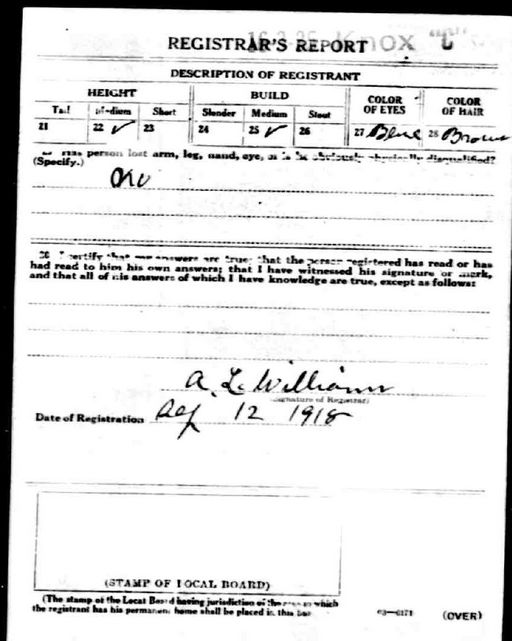 REGISTRAR'S REPORT Knox "C"
DESCRIPTION OF REGISTRANT
HEIGHT BUILD COLOR OF EYES COLOR OF HAIR
Tall Medium Short Slender Medium Stout
21 22 ✓ 23 24 25 ✓ 26 27 Blue 28 Brown
29 Has person lost arm, leg, hand, eye, or is he obviously physically disqualified?
(Specify.)
No
30 I certify that my answers are true; that the person registered has read or has
had read to him his own answers; that I have witnessed his signature or mark,
and that all of his answers of which I have knowledge are true, except as follows:
A. L. Williams
(Signature of Registrar)
Date of Registration Sep 12 1918
(STAMP OF LOCAL BOARD)
(The stamp of the Local Board having jurisdiction of the area in which
the registrant has his permanent home shall be placed in this box.
03—6171 (OVER)